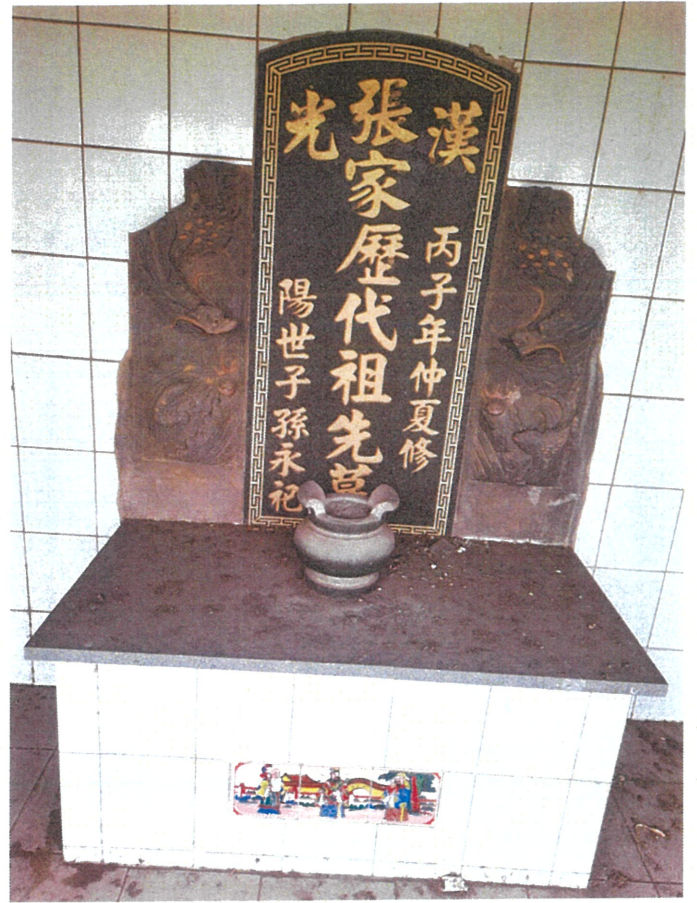 漢光
丙子年仲夏修
張家歷代祖先墓
陽世子孫永祀